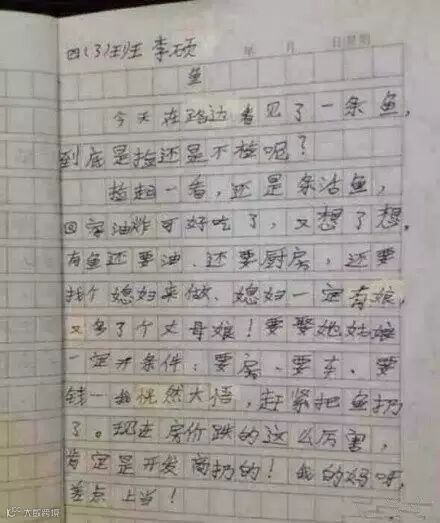 四(3)班 李硕
年 月 日星期
鱼
今天在路边看见了一条鱼,
到底是捡还是不捡呢?
捡起一看,还是条活鱼,
回家油炸可好吃了,又想了想,
有鱼还要油、还要厨房,还要
找个媳妇来做、媳妇一定有娘,
又多了个丈母娘!要娶她姑娘
一定开条件:要房、要车、要
钱一我恍然大悟,赶紧把鱼扔
了。现在房价跌的这么厉害,
肯定是开发商扔的!我的妈呀,
差点上当!
大数跨境